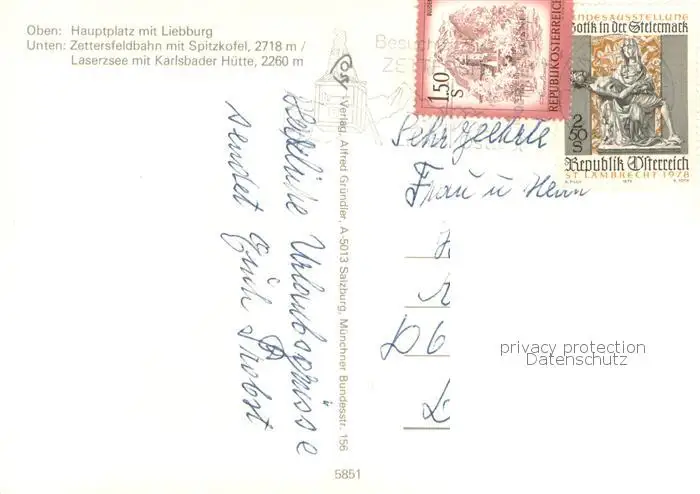 Oben: Hauptplatz mit Liebburg
Unten: Zettersfeldbahn mit Spitzkofel, 2718 m /
Laserzsee mit Karlsbader Hütte, 2260 m
Besuch
1.50 S
REPUBLIK ÖSTERREICH
LANDESAUSSTELLUNG
Gotik in der Steiermark
2 50 S
Republik Österreich
ST. LAMBRECHT 1978
Herzliche Urlaubsgrüsse
sendet
Verlag Alfred Gründler, A-5013 Salzburg, Münchner Bundesstr. 156
Sehr geehrte
Frau u Herrn
D 6
privacy protection
Datenschutz
5851